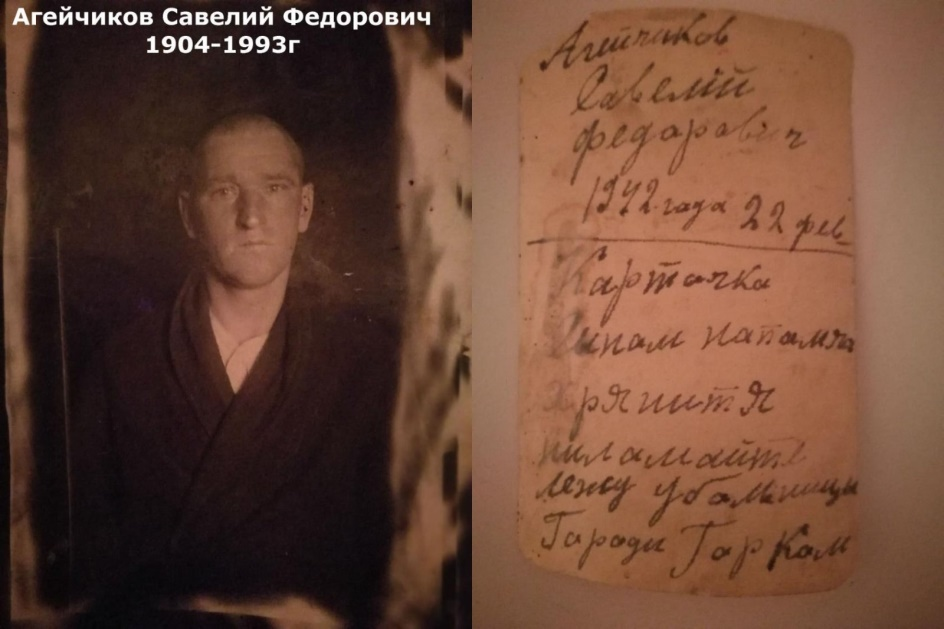 Агейчиков Савелий Федорович
1904-1993г
Агейчиков
Савелий
Федаравич
1942 года 22 фев
Карточка
напамять
Хрянитя
ниламайте
лежу убальницы
Гароди Гаркам